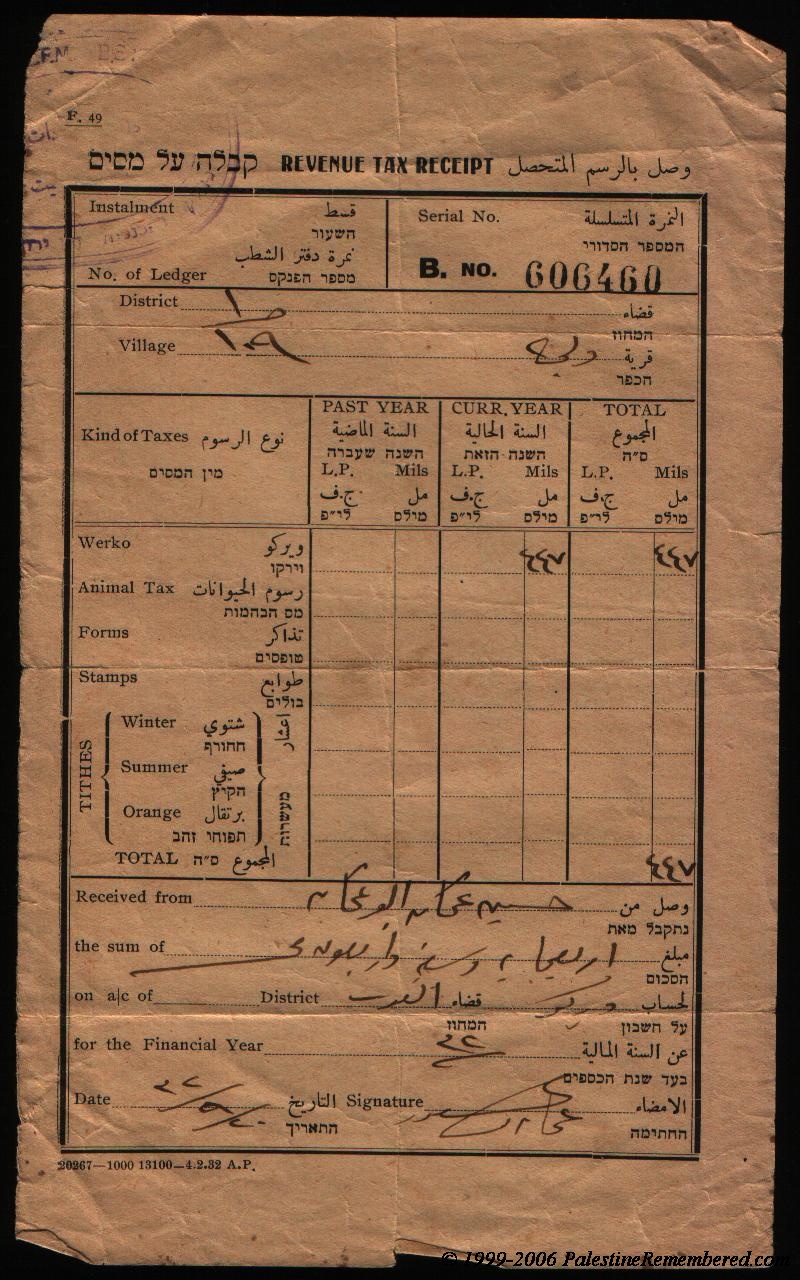 F. 49
קבלה על מסים REVENUE TAX RECEIPT وصل بالرسم المتحصل
Instalment قسط
השעור
No. of Ledger نمرة دفتر الشطب
מספר הפנקס
Serial No. النمرة المتسلسلة
המספר הסדורי
B. NO. 606460
District قضاء
המחוז
Village قرية
הכפר
Kind of Taxes نوع الرسوم
מין המסים
PAST YEAR CURR. YEAR TOTAL
السنة الماضية السنة الحالية المجموع
השנה שעברה השנה הזאת ס״ה
L.P. Mils L.P. Mils L.P. Mils
ج.ف. مل ج.ف. مل ج.ف. مل
לי״פ מילס לי״פ מילס לי״פ מילס
Werko ويركو ٤٤٧ ٤٤٧
וירקו
Animal Tax رسوم الحيوانات
מס הבהמות
Forms تذاكر
טופסים
Stamps طوابع
בולים
TITHES اعشار מעשרות
Winter شتوي
החורף
Summer صيفي
הקיץ
Orange برتقال
תפוחי זהב
TOTAL ס״ה المجموع ٤٤٧
Received from وصل من
נתקבל מאת
the sum of مبلغ
הסכום
on a|c of District قضاء القدس لحساب ويركو
המחוז על חשבון
for the Financial Year عن السنة المالية
בעד שנת הכספים
Date التاريخ Signature الامضاء
התאריך החתימה
20267—1000 13100—4.2.32 A.P.
© 1999-2006 PalestineRemembered.com